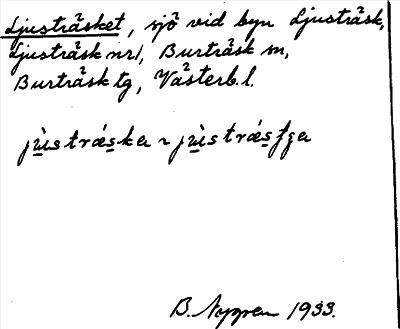 Ljusträsket, sjö vid byn Ljusträsk,
Ljusträsk nr 1, Burträsk sn,
Burträsk tg, Västerb. l.
B. Nygren 1933.